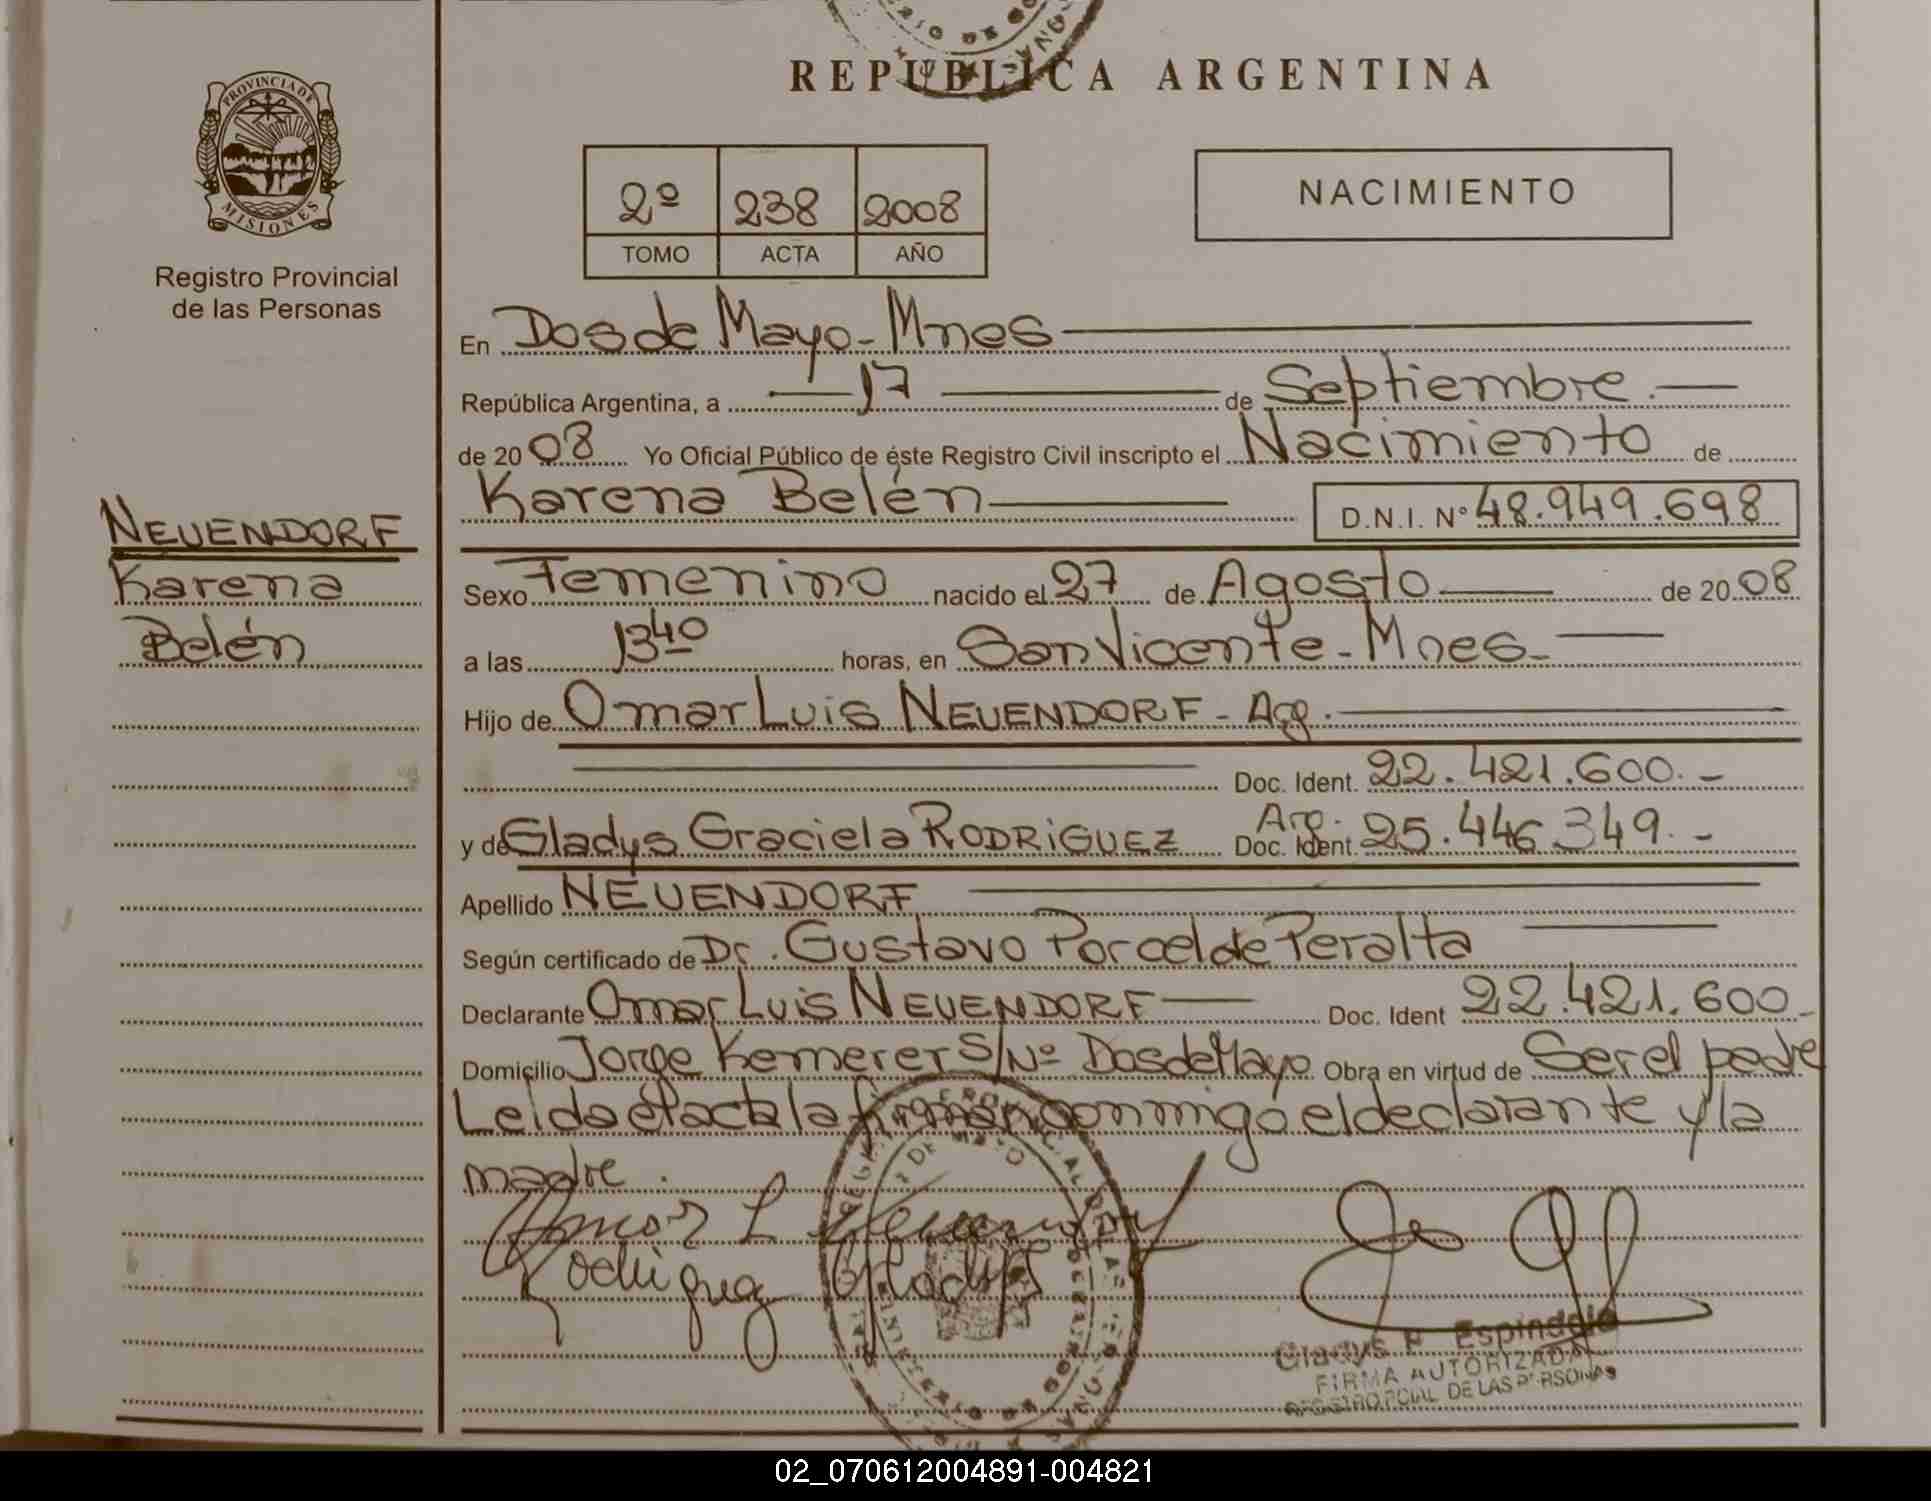 REPUBLICA ARGENTINA
PROVINCIA DE
MISIONES
Registro Provincial
de las Personas
2º 238 2008
TOMO ACTA AÑO
NACIMIENTO
En Dos de Mayo - Mnes
República Argentina, a 17 de Septiembre.
de 2008 Yo Oficial Público de éste Registro Civil inscripto el Nacimiento de
Karena Belén D.N.I. Nº 48.949.698
NEUENDORF
Karena
Belén
Sexo Femenino nacido el 27 de Agosto de 2008
a las 13 40 horas, en San Vicente - Mnes -
Hijo de Omar Luis NEUENDORF - Arg.
Doc. Ident. 22.421.600.-
y de Gladys Graciela RODRIGUEZ Arg. Doc. Ident. 25.446.349.-
Apellido NEUENDORF
Según certificado de Dr. Gustavo Porcel de Peralta
Declarante Omar Luis NEUENDORF Doc. Ident 22.421.600-
Domicilio Jorge Kemerer S/Nº Dos de Mayo Obra en virtud de Ser el padre
Leída el acta la firman conmigo el declarante y la
madre.
Omar L Neuendorf
Rodriguez Gladys
Gladys F. Espindola
FIRMA AUTORIZADA
REGISTRO PCIAL DE LAS PERSONAS
02_070612004891-004821